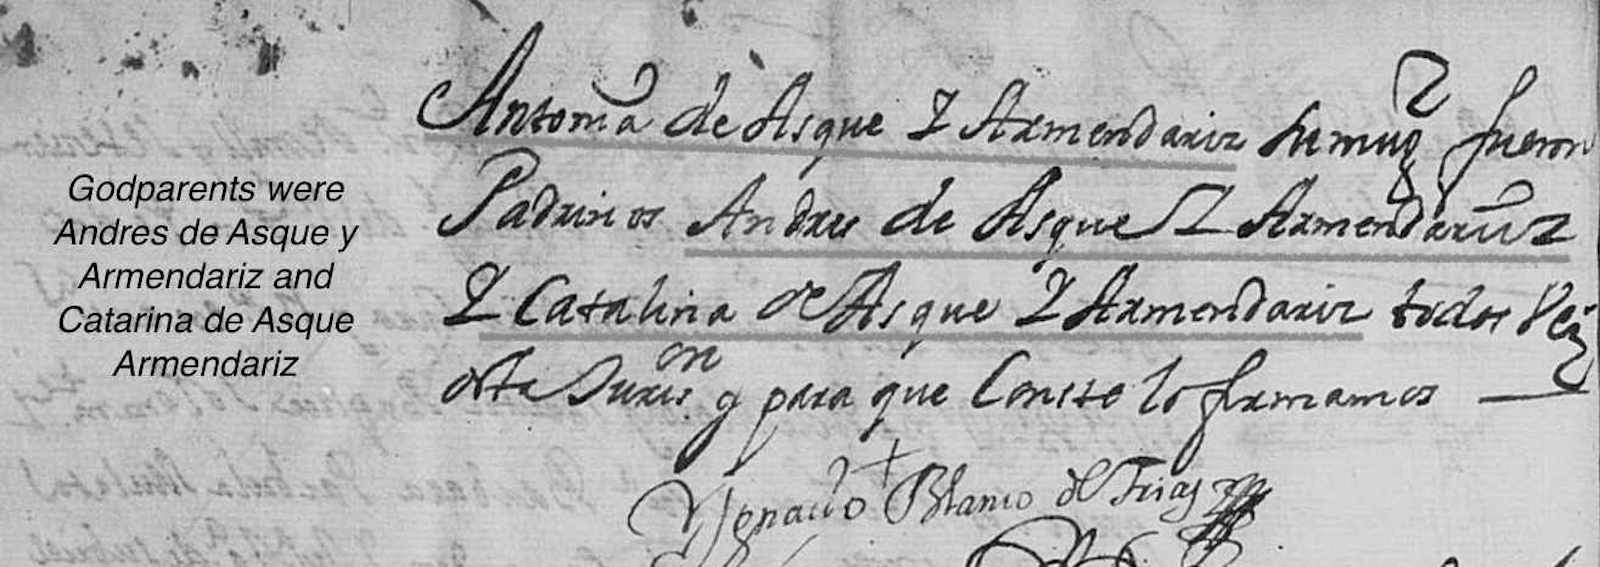 Godparents were
Andres de Asque y
Armendariz and
Catarina de Asque
Armendariz
Antonia de Asque Y Armendariz su mugr fueron
Padrinos Andres de Asque Y Armendariz
Y Catalina de Asque Y Armendariz todos Vez
desta Jurison y para que Conste lo firmamos
Ygnacio Blanco de Frias